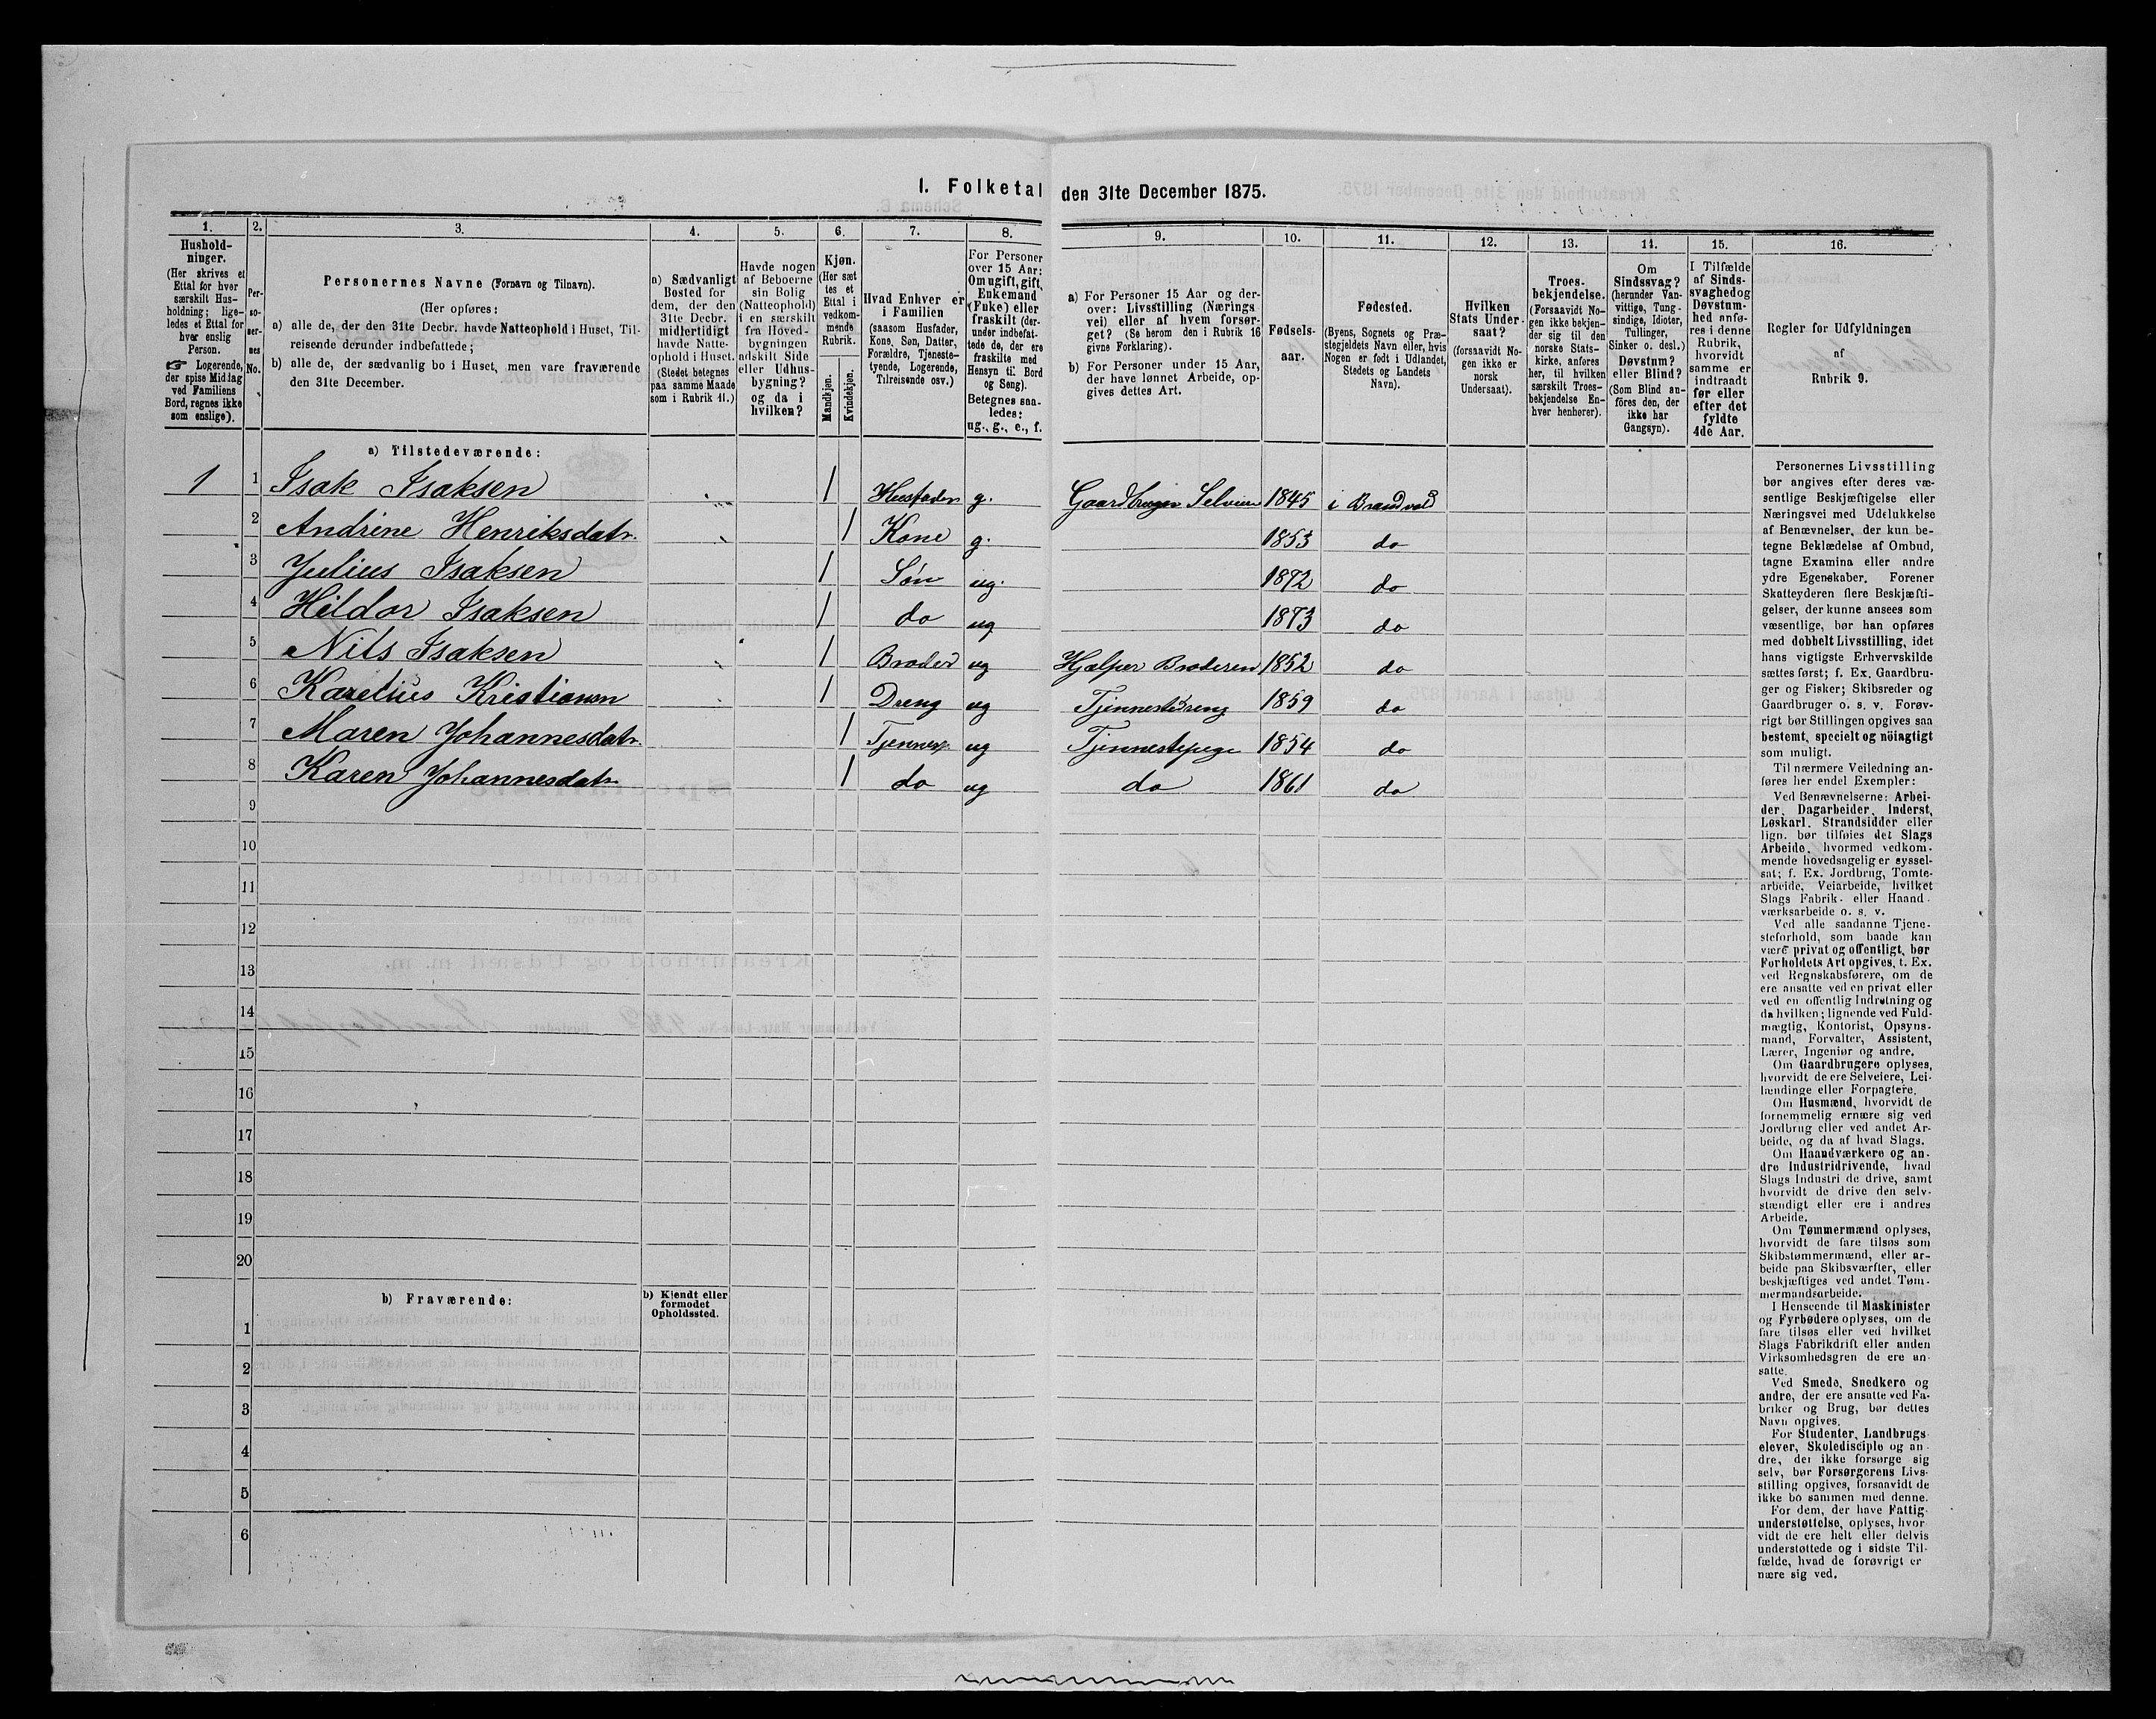 I. Folketal den 31te December 1875.
1. 2. 3. 4. 5. 6. 7. 8. 9. 10. 11. 12. 13. 14. 15. 16.
Hushold-
ninger.
(Her skrives et
Ettal for hver
særskilt Hus-
holdning; lige-
ledes et Ettal for
hver enslig
Person.
☞ Logerende,
der spise Middag
ved Familiens
Bord, regnes ikke
som enslige).
Per-
so-
ner-
nes
No.
Personernes Navne (Fornavn og Tilnavn).
(Her opføres:
a) alle de, der den 31te Decbr. havde Natteophold i Huset, Til-
reisende derunder indbefattede;
b) alle de, der sædvanlig bo i Huset, men vare fraværende
den 31te December.
a) Sædvanligt
Bosted for
dem, der den
31te Decbr.
midlertidigt
havde Natte-
ophold i Huset.
(Stedet betegnes
paa samme Maade
som i Rubrik 11.)
Havde nogen
af Beboerne
sin Bolig
(Natteophold)
i en særskilt
fra Hoved-
bygningen
adskilt Side
eller Udhus-
bygning?
og da i
hvilken?
Kjøn.
(Her sæt
tes et
Ettal i
vedkom-
mende
Rubrik.
Mandkjøn.
Kvindekjøn.
Hvad Enhver er
i Familien
(saasom Husfader,
Kone, Søn, Datter,
Forældre, Tjeneste-
tyende, Logerende,
Tilreisende osv.)
For Personer
over 15 Aar:
Om ugift, gift,
Enkemand
(Enke) eller
fraskilt (der-
under indbefat-
tede de, der ere
fraskilte med
Hensyn til Bord
og Seng).
Betegnes saa-
ledes:
ug., g., e., f.
a) For Personer 15 Aar og der-
over: Livsstilling (Nærings
vei) eller af hvem forsør-
get? (Se herom den i Rubrik 16
givne Forklaring).
b) For Personer under 15 Aar,
der have lønnet Arbeide, op-
gives dettes Art.
Fødsels-
aar.
Fødested.
(Byens, Sognets og Præ-
stegjeldets Navn eller, hvis
Nogen er født i Udlandet,
Stedets og Landets
Navn).
Hvilken
Stats Under-
saat?
(forsaavidt No-
gen ikke er
norsk
Undersaat).
Troes-
bekjendelse.
(Forsaavidt No-
gen ikke bekjen-
der sig til den
norske Stats-
kirke, anføres
her, til hvilken
særskilt Troes-
bekjendelse En-
hver henhører).
Om
Sindssvag?
(herunder Van-
vittige, Tung-
sindige, Idioter,
Tullinger,
Sinker o. desl.)
Døvstum?
eller Blind?
(Som Blind an-
føres den, der
ikke har
Gangsyn).
I Tilfælde
af Sinds-
svaghed og
Døvstum-
hed anfø-
res i denne
Rubrik,
hvorvidt
samme er
indtraadt
før eller
efter det
fyldte
4de Aar.
Regler for Udfyldningen
af
Rubrik 9.
a) Tilstedeværende:
1 1 Isak Isaksen 1 Husfader g. Gaardbruger Selveier 1845 i Brandvold
2 Andrine Henriksdatr. 1 Kone g. 1853 do
3 Julius Isaksen 1 Søn ug. 1872 do
4 Hildor Isaksen 1 do ug 1873 do
5 Nils Isaksen 1 Broder ug Hjælper Broderen 1852 do
6 Karelius Kristiansen 1 Dreng ug Tjennestedreng 1859 do
7 Maren Johannesdatr. 1 Tjennesp. ug Tjennestepige 1854 do
8 Karen Johannesdatr. 1 do ug do 1861 do
9
10
11
12
13
14
15
16
17
18
19
20
b) Fraværende:
b) Kjendt eller
formodet
Opholdssted.
1
2
3
4
5
6
Personernes Livsstilling
bør angives efter deres væ-
sentlige Beskjæftigelse eller
Næringsvei med Udelukkelse
af Benævnelser, der kun be-
tegne Beklædelse af Ombud,
tagne Examina eller andre
ydre Egenskaber. Forener
Skatteyderen flere Beskjæfti-
gelser, der kunne ansees som
væsentlige, bør han opføres
med dobbelt Livsstilling, idet
hans vigtigste Erhvervskilde
sættes først; f. Ex. Gaardbru-
ger og Fisker; Skibsreder og
Gaardbruger o. s. v. Forøv-
rigt bør Stillingen opgives saa
bestemt, specielt og nöiagtigt
som muligt.
Til nærmere Veiledning an-
føres her endel Exempler:
Ved Benævnelserne: Arbei-
der, Dagarbeider, Inderst,
Løskarl, Strandsidder eller
lign. bør tilføies det Slags
Arbeide, hvormed vedkom-
mende hovedsagelig er syssel-
sat; f. Ex. Jordbrug, Tomte-
arbeide, Veiarbeide, hvilket
Slags Fabrik- eller Haand-
værksarbeide o. s. v.
Ved alle saadanne Tjene-
steforhold, som baade kan
være privat og offentligt, bør
Forholdets Art opgives, t. Ex.
ved Regnskabsførere, om de
ere ansatte ved en privat eller
ved en offentlig Indretning og
da hvilken; lignende ved Fuld-
mægtig, Kontorist, Opsyns-
mand, Forvalter, Assistent,
Lærer, Ingeniør og andre.
Om Gaardbrugere oplyses,
hvorvidt de ere Selveiere, Lei-
lændinge eller Forpagtere.
Om Husmænd, hvorvidt de
fornemmelig ernære sig ved
Jordbrug eller ved andet Ar-
beide, og da af hvad Slags.
Om Haandværkere og an-
dre Industridrivende, hvad
Slags Industri de drive, samt
hvorvidt de drive den selv-
stændigt eller ere i andres
Arbeide.
Om Tømmermænd oplyses,
hvorvidt de fare tilsøs som
Skibstømmermænd, eller ar-
beide paa Skibsværfter, eller
beskjæftiges ved andet Tøm-
mermandsarbeide.
I Henseende til Maskinister
og Fyrbødere oplyses, om de
fare tilsøs eller ved hvilket
Slags Fabrikdrift eller anden
Virksomhedsgren de ere an-
satte.
Ved Smede, Snedkere og
andre, der ere ansatte ved Fa-
briker og Brug, bør dettes
Navn opgives.
For Studenter, Landbrugs
elever, Skoledisciple og an-
dre, der ikke forsørge sig
selv, bør Forsørgerens Livs-
stilling opgives, forsaavidt de
ikke bo sammen med denne.
For dem, der have Fattig-
understøttelse, oplyses, hvor-
vidt de ere helt eller delvis
understøttede og i sidste Til-
fælde, hvad de forøvrigt er
nære sig ved.